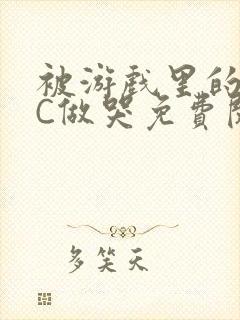 被游戏里的
C做哭免費阅
多笑天